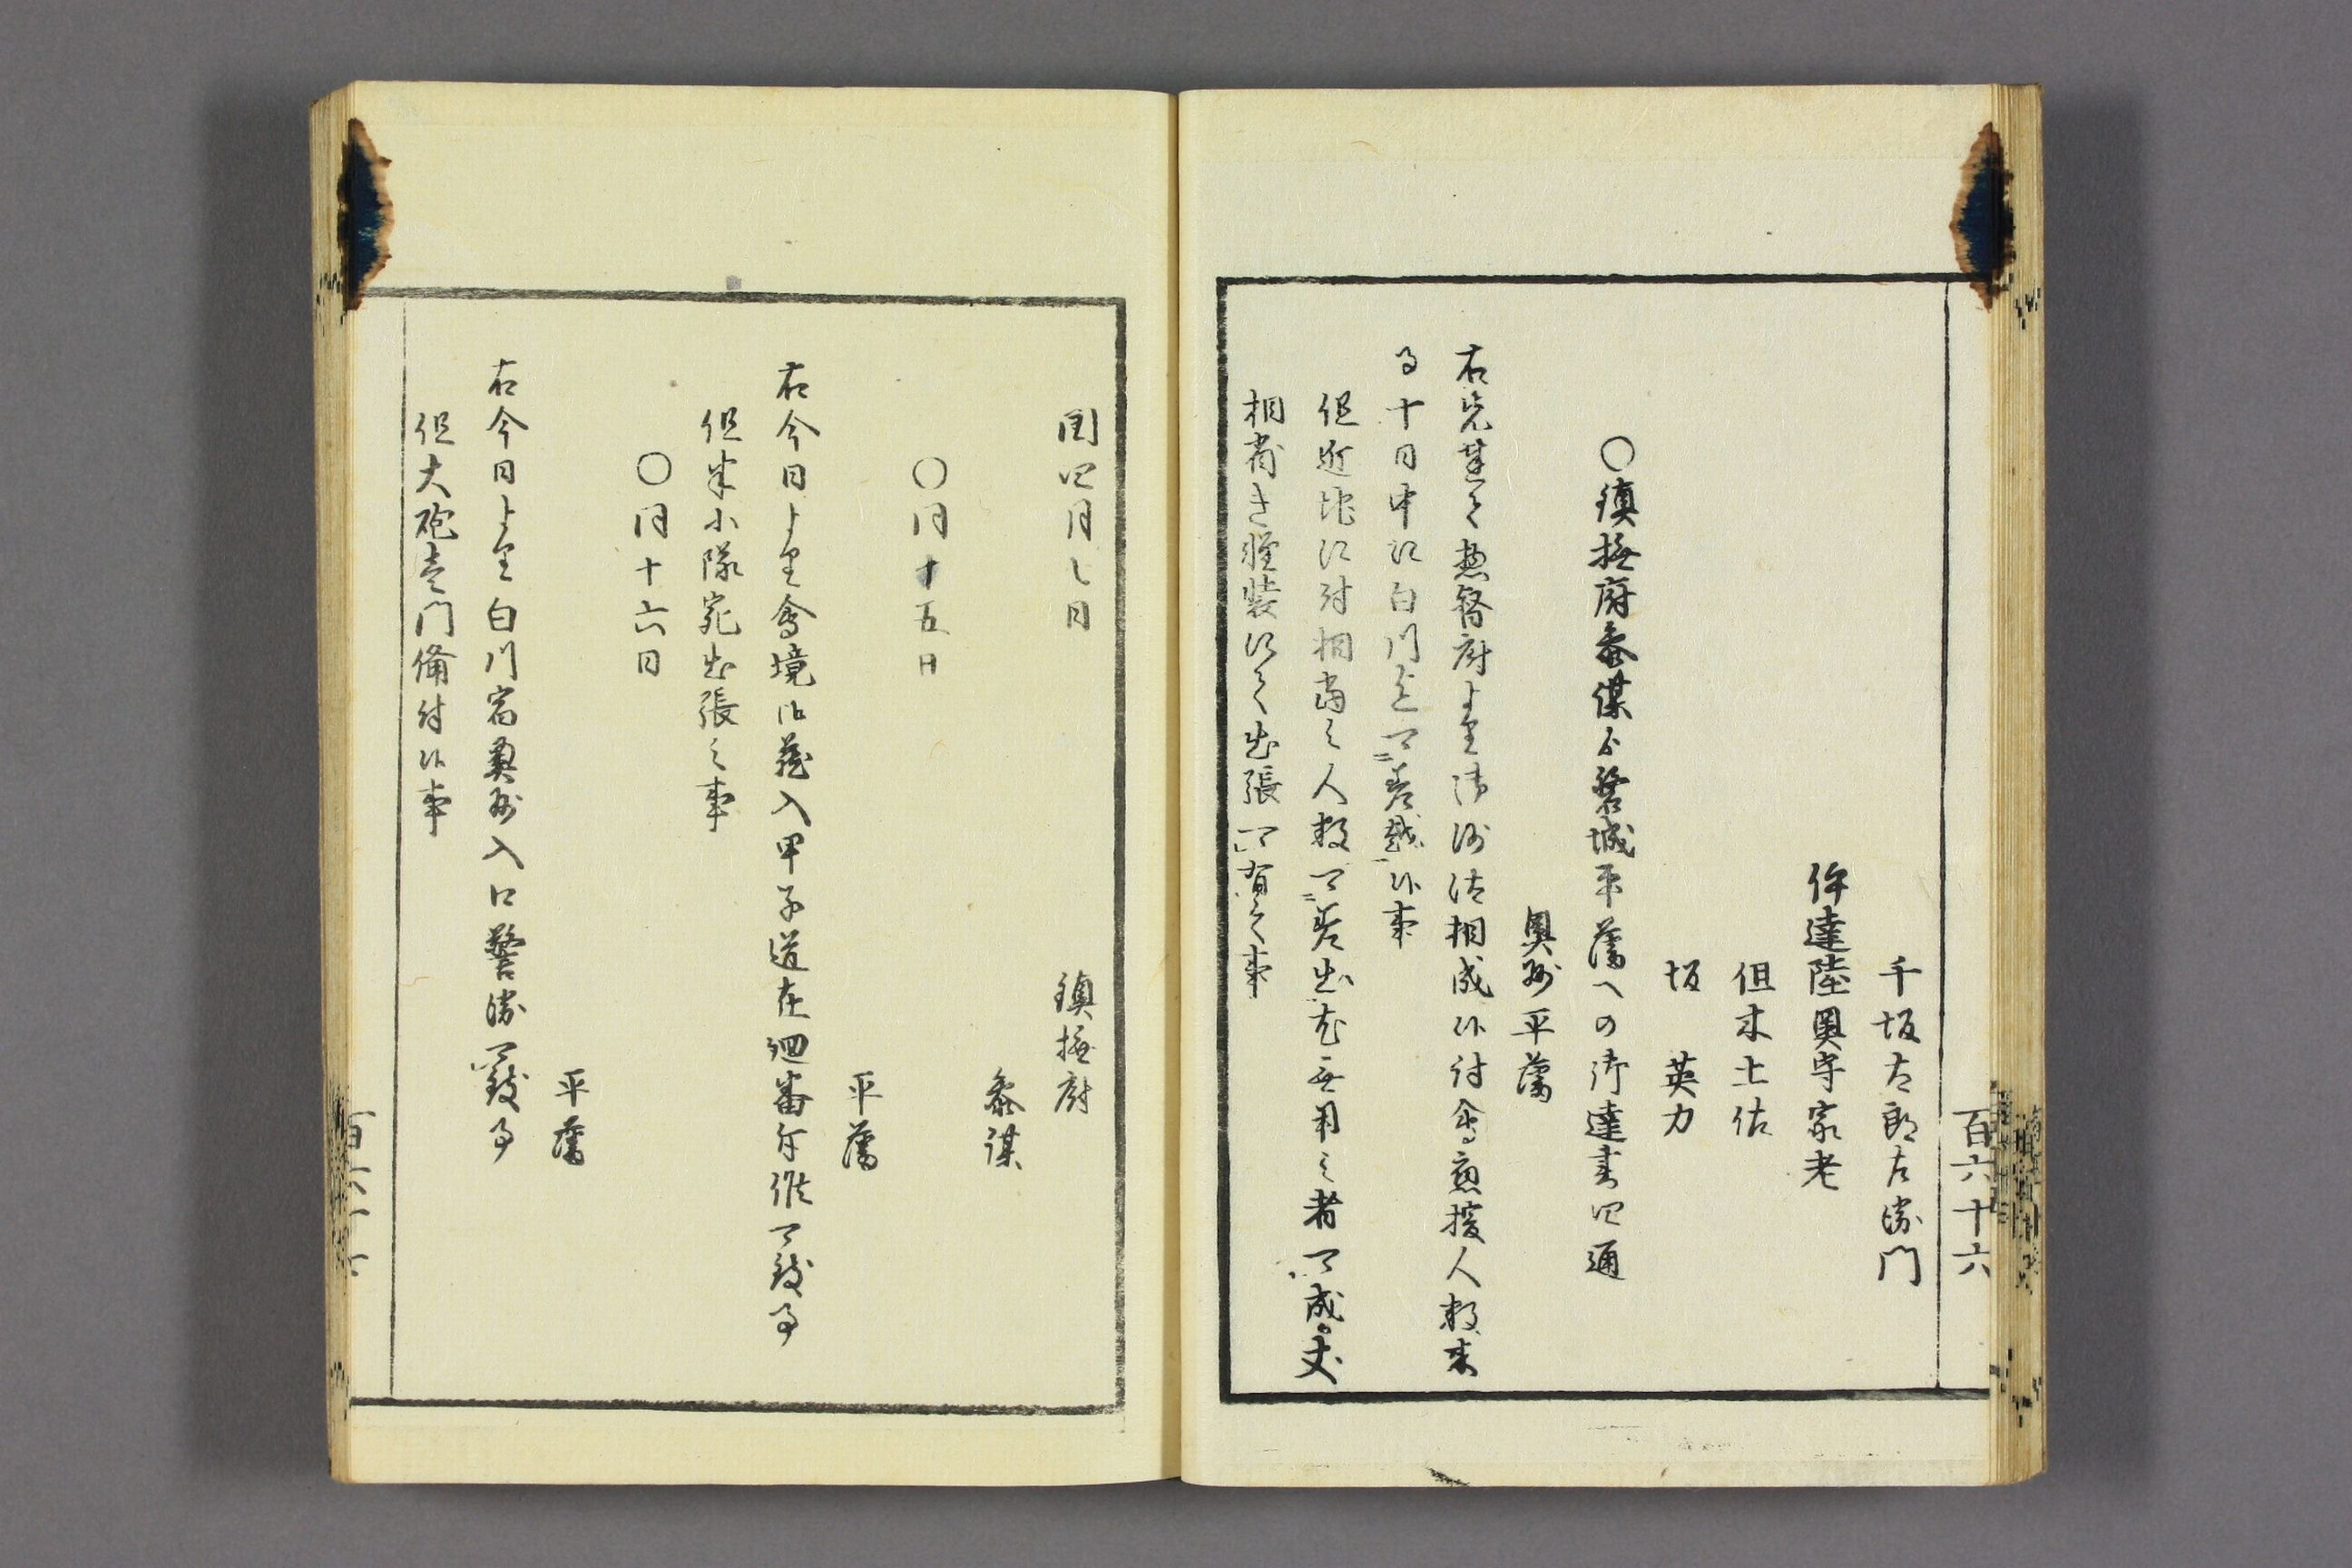 百六十六
千坂太郎左衛門
伊達陸奥守家老
但木土佐
坂 英力
〇鎮撫府参謀ゟ磐城平藩への御達書四通
奥州平藩
右先達て惣督府より御沙汰相成候付会応援人数来
る十日中に白川迄可差越候事
但近地に付相当之人数可差出尤無用之者可成丈
相省き軽装にて出張可有之事
閏四月七日 鎮撫府
参謀
〇同十五日
平藩
右今日より会境御蔵入甲子道在廻番斥候可致事
但半小隊宛出張之事
〇同十六日
平藩
右今日より白川宿奥州入口警衛可致事
但大砲壱門備付候事